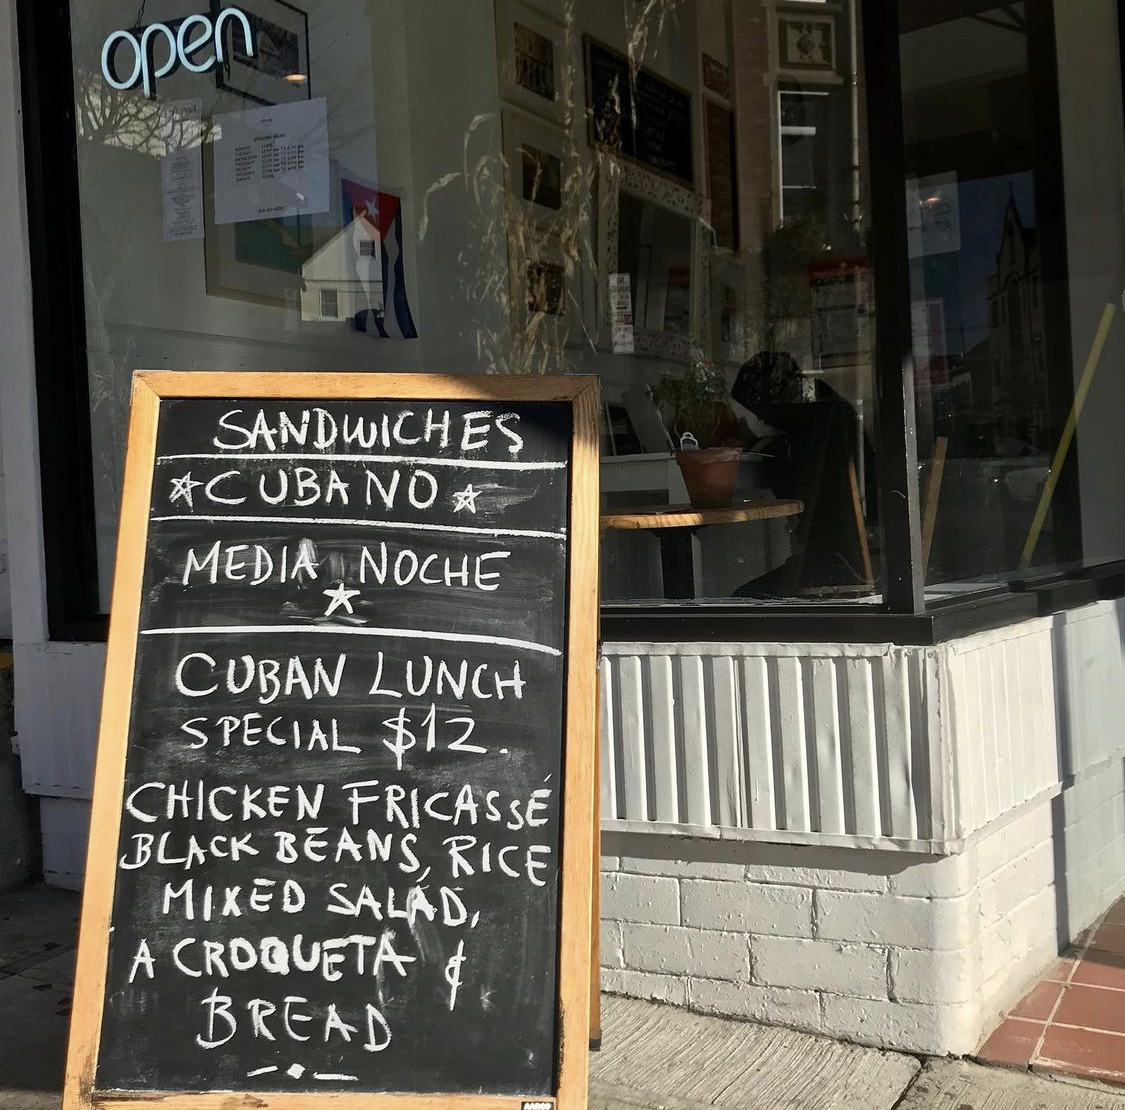 open
SANDWICHES
CUBANO
MEDIA NOCHE
CUBAN LUNCH
SPECIAL $12.
CHICKEN FRICASSÉ
BLACK BEANS, RICE
MIXED SALAD,
A CROQUETA &
BREAD